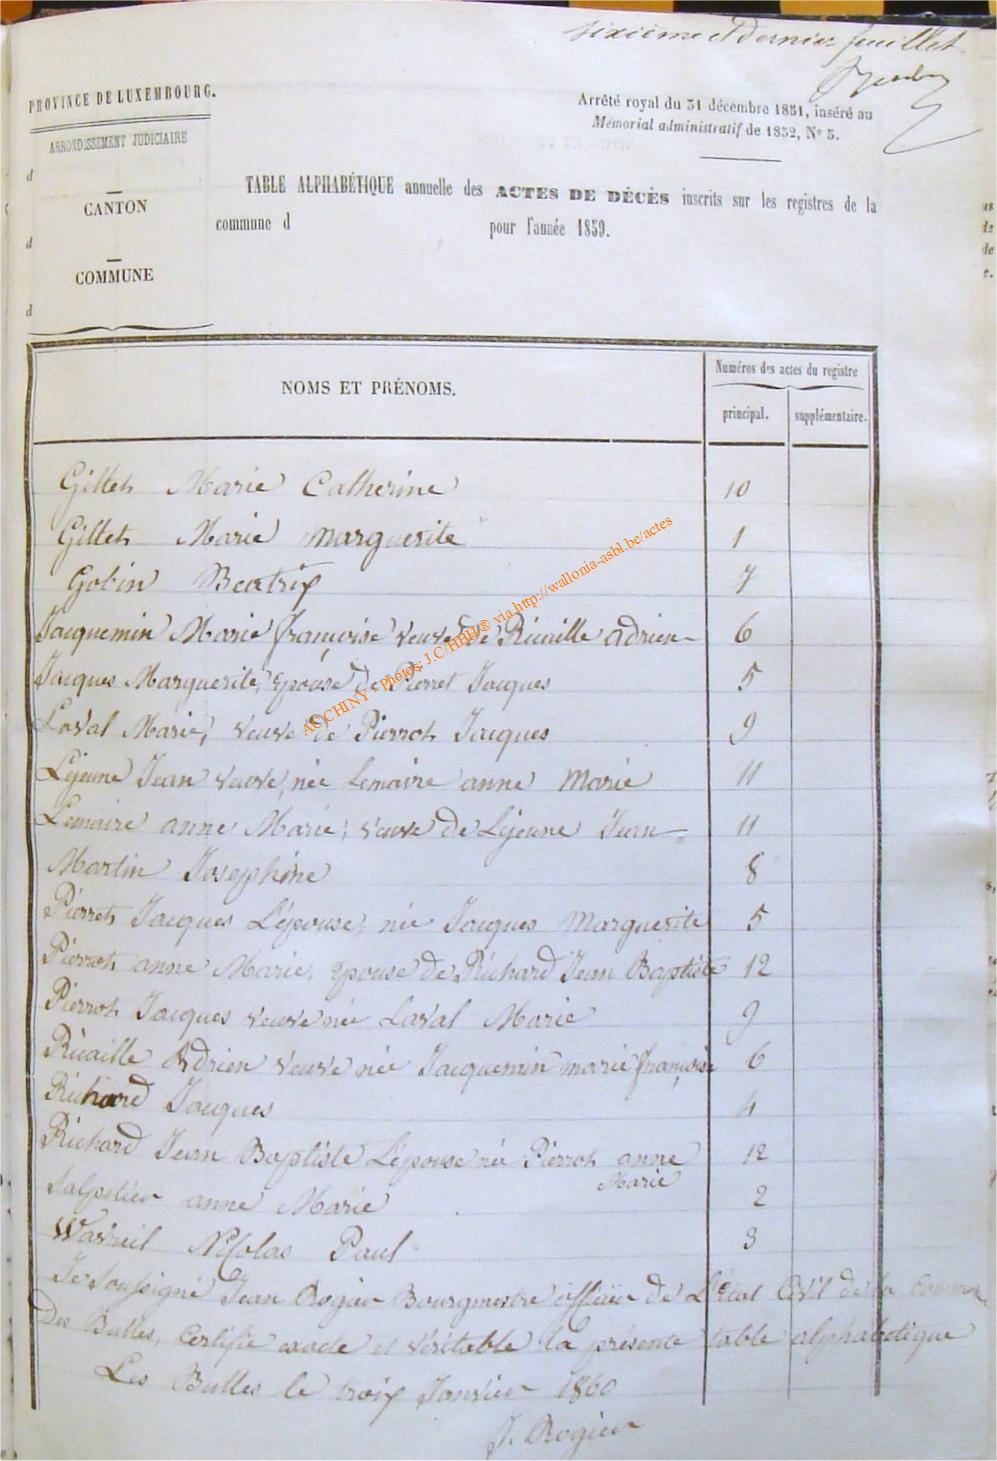 sixième et dernier feuillet
PROVINCE DE LUXEMBOURG.
ARRONDISSEMENT JUDICIAIRE
d
CANTON
d
COMMUNE
d
Arrêté royal du 31 décembre 1851, inséré au
Mémorial administratif de 1852, N° 5.
TABLE ALPHABÉTIQUE annuelle des ACTES DE DÉCÈS inscrits sur les registres de la
commune d pour l'année 1859.
NOMS ET PRÉNOMS.
Numéros des actes du registre
principal. supplémentaire.
Gillet Marie Catherine 10
Gillet Marie Marguerite 1
Gobin Beatrix 7
Jacquemin Marie françoise veuve de Riuaille adrien 6
Jacques Marguerite, Epouse de Pierret Jacques 5
Laval Marie, veuve de Pierrot Jacques 9
Lejeune Jean veuve, née Lemaire anne Marie 11
Lemaire anne Marie, veuve de Lejeune Jean 11
Martin Josephine 8
Pierret Jacques L'épouse, née Jacques Marguerite 5
Pierrot anne Marie, Epouse de Richard Jean Baptiste 12
Pierrot Jacques veuve née Laval Marie 9
Riuaille Adrien veuve née Jacquemin marie françoise 6
Richard Jacques 4
Richard Jean Baptiste L'épouse née Pierrot anne 12
Marie
Salpetier anne Marie 2
Watreil Nicolas Paul 3
Je Soussigné Jean Rogier Bourgmestre officier de L'Etat Civil de la Commune
Des Bulles, certifie exacte et véritable la présente table alphabetique
Les Bulles le trois Janvier 1860
J. Rogier
AC CHINY - Photos J.C/HBH® via http://wallonia-asbl.be/actes